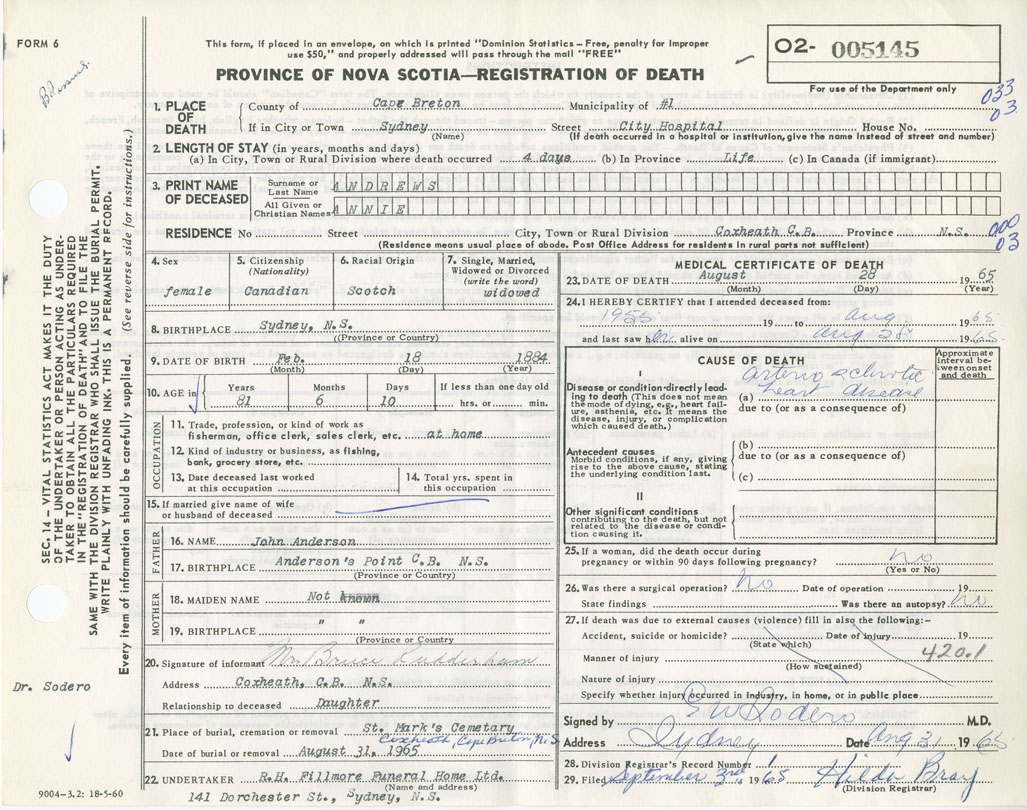 FORM 6
This form, if placed in an envelope, on which is printed "Dominion Statistics – Free, penalty for improper
use $50," and properly addressed will pass through the mail "FREE"
PROVINCE OF NOVA SCOTIA—REGISTRATION OF DEATH
02- 005145
For use of the Department only
033
03
1. PLACE OF DEATH
County of Cape Breton Municipality of #1
If in City or Town Sydney (Name) Street City Hospital House No.
(If death occurred in a hospital or institution, give the name instead of street and number)
2. LENGTH OF STAY (in years, months and days)
(a) In City, Town or Rural Division where death occurred 4 days (b) In Province Life (c) In Canada (if immigrant)
3. PRINT NAME OF DECEASED
Surname or Last Name ANDREWS
All Given or Christian Names ANNIE
000
03
RESIDENCE No Street City, Town or Rural Division Coxheath C.B. Province N.S.
(Residence means usual place of abode. Post Office Address for residents in rural parts not sufficient)
4. Sex female
5. Citizenship (Nationality) Canadian
6. Racial Origin Scotch
7. Single, Married, Widowed or Divorced (write the word) widowed
8. BIRTHPLACE Sydney, N.S.
(Province or Country)
9. DATE OF BIRTH Feb. 18 1884
(Month) (Day) (Year)
10. AGE in Years Months Days If less than one day old
81 6 10 hrs. or min.
OCCUPATION
11. Trade, profession, or kind of work as
fisherman, office clerk, sales clerk, etc. at home
12. Kind of industry or business, as fishing,
bank, grocery store, etc.
13. Date deceased last worked at this occupation
14. Total yrs. spent in this occupation
15. If married give name of wife
or husband of deceased
FATHER
16. NAME John Anderson
17. BIRTHPLACE Anderson's Point C.B. N.S.
(Province or Country)
MOTHER
18. MAIDEN NAME Not known
19. BIRTHPLACE " "
(Province or Country)
20. Signature of informant Mrs Bruce Rudderham
Address Coxheath, C.B. N.S.
Relationship to deceased Daughter
21. Place of burial, cremation or removal St. Mark's Cemetary
Coxheath, Cape Breton, N.S.
Date of burial or removal August 31, 1965
22. UNDERTAKER R.H. Fillmore Funeral Home Ltd.
(Name and address)
141 Dorchester St., Sydney, N.S.
9004–3.2: 18-5-60
MEDICAL CERTIFICATE OF DEATH
23. DATE OF DEATH August 28 1965
(Month) (Day) (Year)
24. I HEREBY CERTIFY that I attended deceased from:
1955 19 to Aug 1965
and last saw her alive on Aug 28 1965
CAUSE OF DEATH
Approximate interval between onset and death
I
Disease or condition directly leading to death (This does not mean the mode of dying, e.g., heart failure, asthenia, etc. It means the disease, injury, or complication which caused death.)
(a) arterio sclerotic
heart disease
due to (or as a consequence of)
Antecedent causes
Morbid conditions, if any, giving rise to the above cause, stating the underlying condition last.
(b)
due to (or as a consequence of)
(c)
II
Other significant conditions
contributing to the death, but not related to the disease or condition causing it.
25. If a woman, did the death occur during
pregnancy or within 90 days following pregnancy? no
(Yes or No)
26. Was there a surgical operation? no Date of operation 19
State findings Was there an autopsy? no
27. If death was due to external causes (violence) fill in also the following:–
Accident, suicide or homicide? Date of injury 19
(State which)
Manner of injury 420.1
(How sustained)
Nature of injury
Specify whether injury occurred in industry, in home, or in public place
Signed by E W Sodero M.D.
Address Sydney Date Aug 31 1965
28. Division Registrar's Record Number 1
29. Filed September 3rd 1965 Hilda Bray
(Division Registrar)
SEC. 14 – VITAL STATISTICS ACT MAKES IT THE DUTY
OF THE UNDERTAKER OR PERSON ACTING AS UNDER-
TAKER TO OBTAIN ALL THE PARTICULARS REQUIRED
IN THE "REGISTRATION OF DEATH" AND TO FILE THE
SAME WITH THE DIVISION REGISTRAR WHO SHALL ISSUE THE BURIAL PERMIT.
WRITE PLAINLY WITH UNFADING INK. THIS IS A PERMANENT RECORD.
Every item of information should be carefully supplied. (See reverse side for instructions.)
Dr. Sodero